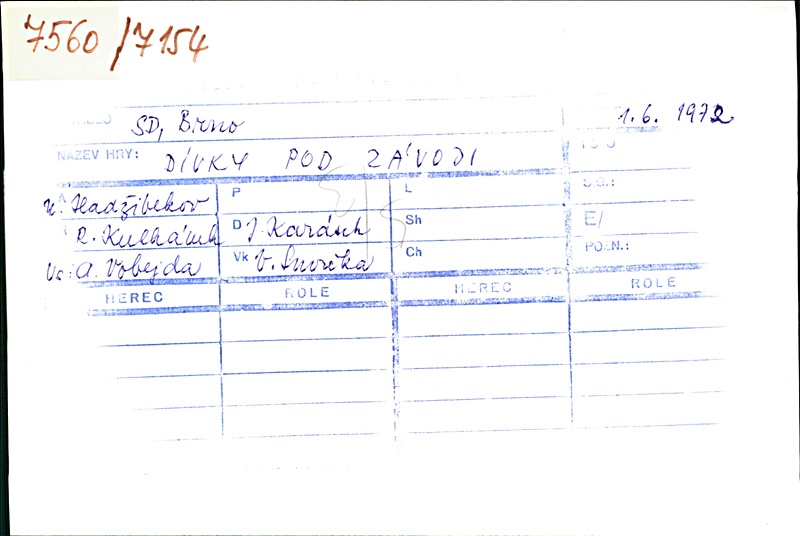 7560/7154
SD, Brno
1.6. 1972
NÁZEV HRY: DÍVKY POD ZÁVOJI
U. Hadžibekov
P
L
R. Kulhánek
D J. Karásek
Sh
E/
Vo: A. Vobejda
Vk V. Suvrcka
Ch
POZN.:
HEREC
ROLE
HEREC
ROLE